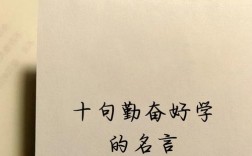 十句勤奋好学
的名言